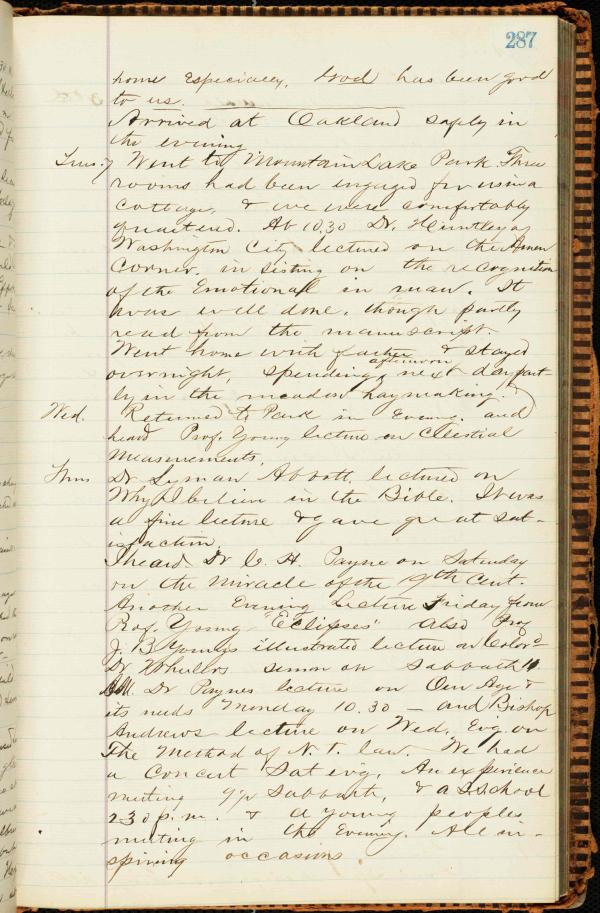 287
home Especially. God has been good
to us.
Arrived at Oakland safely in
the evening
Tues. 7 Went to Mountain Lake Park. Three
rooms had been engaged for us in a
cottage, & we were comfortably
quartered. At 10.30 Dr. Huntley of
Washington City lectured on the Amen
Corner. insisting on the recognition
of the Emotional in man. It
was well done, though partly
read from the manuscript.
Went home with father & stayed
overnight, spending afternoon next day part-
ly in the meadow haymaking.
Wed. Returned to Park in Evening. and
heard Prof. Young lecture on Celestial
Measurements.
Thurs Dr Lyman Abbott lectured on
Why I believe in the Bible. It was
a fine lecture & gave great sat-
isfaction.
I heard Dr C. H. Payne on Saturday
on the Miracle of the 19th Cent.
Another Evening Lecture Friday from
Prof. Young "Eclipses" also Prof
J. B. Youngs illustrated lecture on Color
Dr Wheelers sermon on Sabbath 11
A.M. Dr Paynes lecture on Our Age &
its needs Monday 10.30 — and Bishop
Andrews lecture on Wed. Evg. on
The Method of N. T. law. We had
a Concert Sat evg. An experience
meeting 9 Sabbath, & a S. School
2.30 p.m. & a young peoples
meeting in the Evening. All in-
spiring occasions.